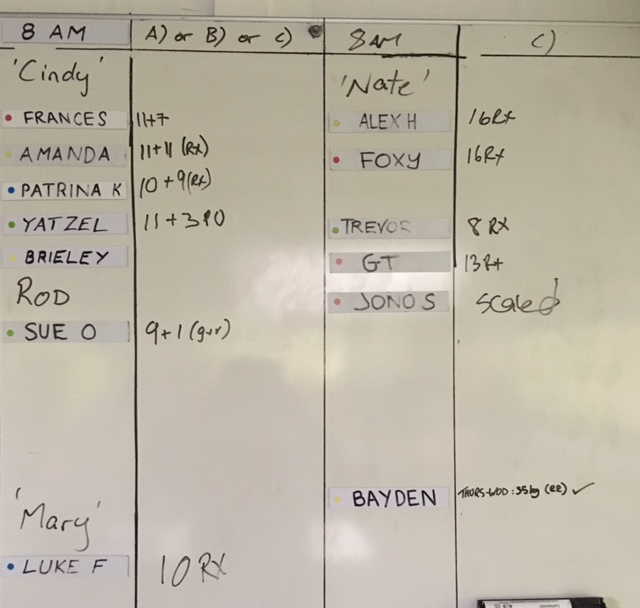 8 AM A) or B) or C) 8AM C)
'Cindy' 'Nate'
FRANCES 11+7 ALEX H 16Rx
AMANDA 11+11 (Rx) FOXY 16Rx
PATRINA K 10+9(Rx)
YATZEL 11+3PO TREVOR 8 RX
BRIELEY GT 13Rx
ROD JONO S Scaled
SUE O 9+1
BAYDEN THURS-WOD: 35kg ✓
'Mary'
LUKE F 10 RX